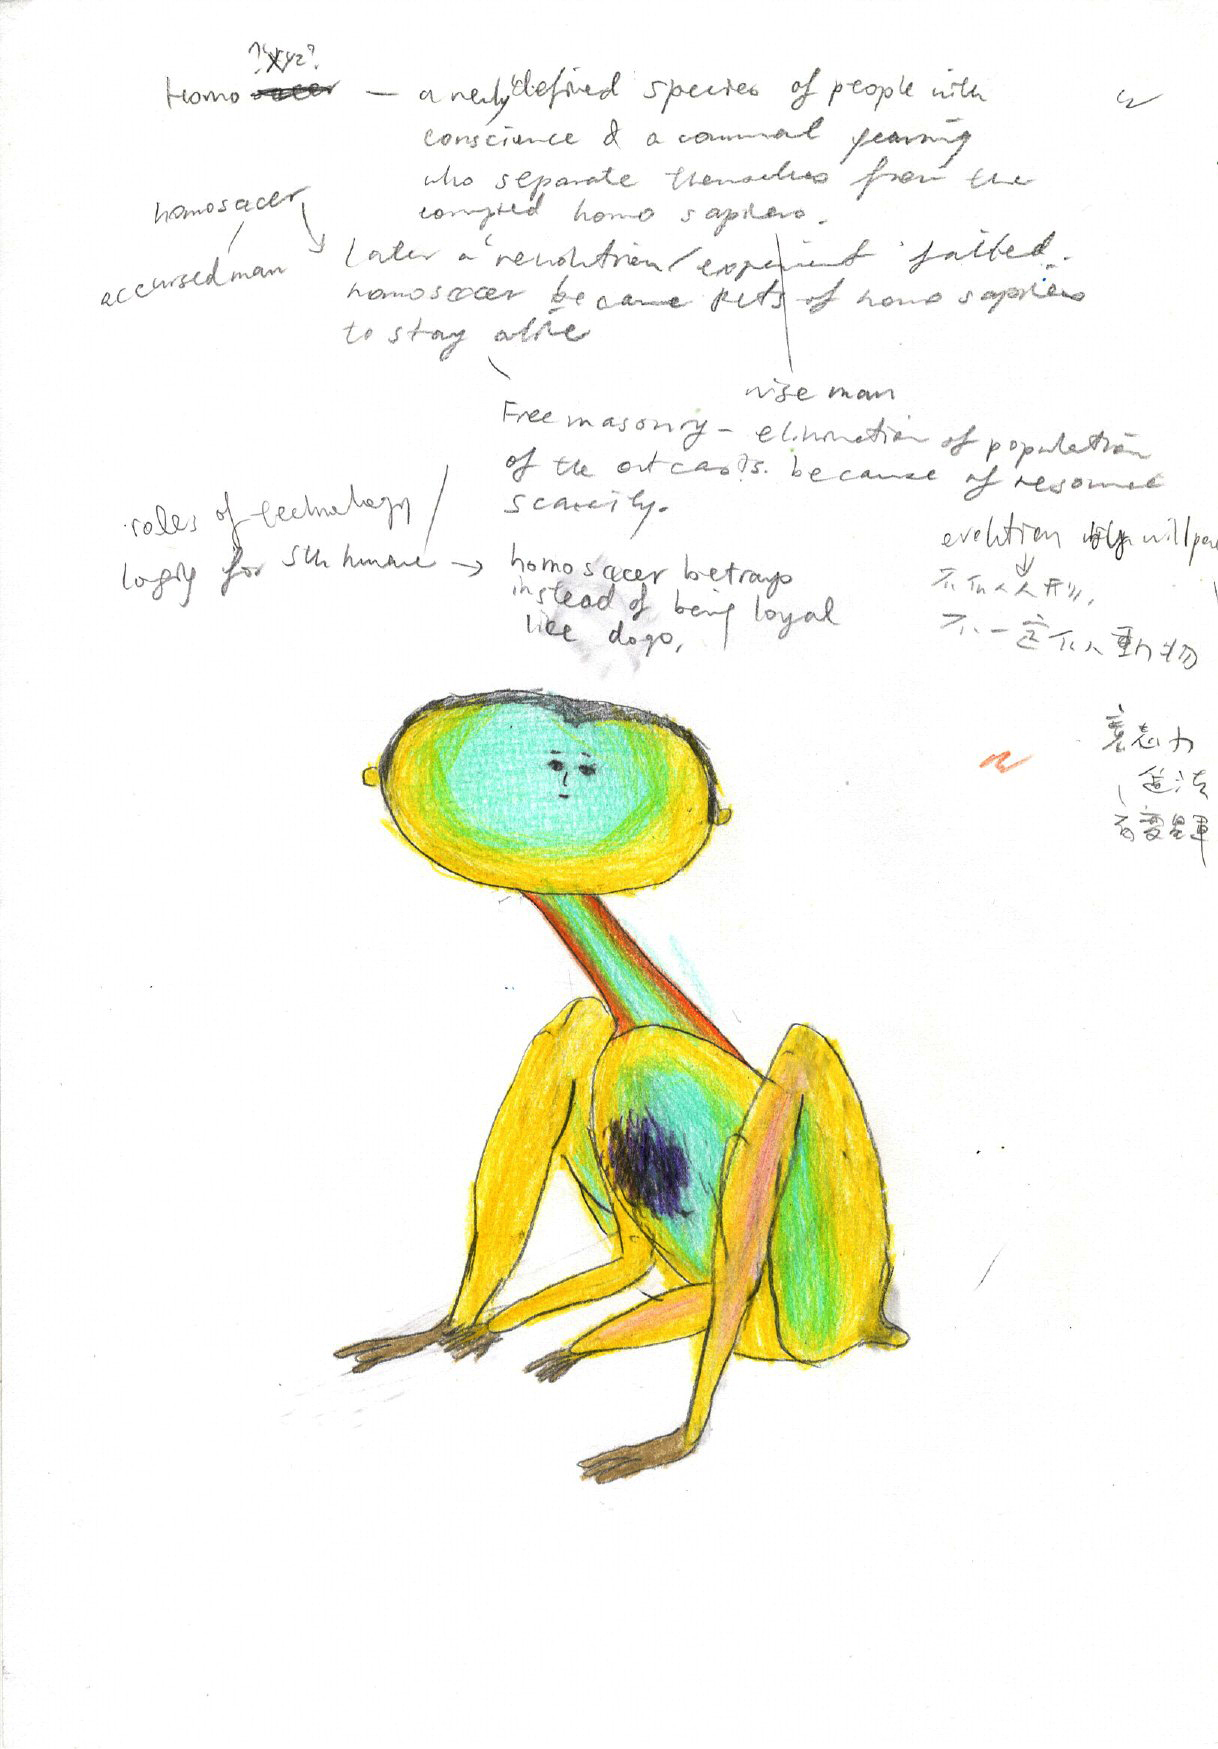 ?xyz?
Homo sacer — a newly defined species of people with
conscience & a communal yearning
who separate themselves from the
corrupted homo sapiens.
homo sacer
accursed man
Later a revolution/experiment failed.
homo sacer became pets of homo sapiens
to stay alive
wise man
Free masonry - elimination of population
of the outcasts. because of resource
scarcity.
roles of technology
logic for
homo sacer betrays
instead of being loyal
like dogs,
evolution
不一定
動物
意志力